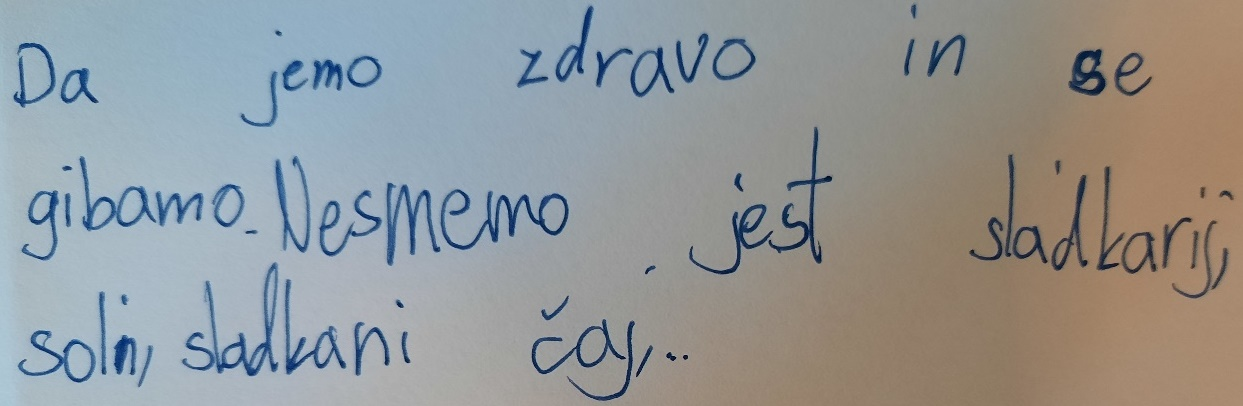 Da jemo zdravo in se
gibamo. Nesmemo jest sladkarij,
soln, sladkani čaj,...